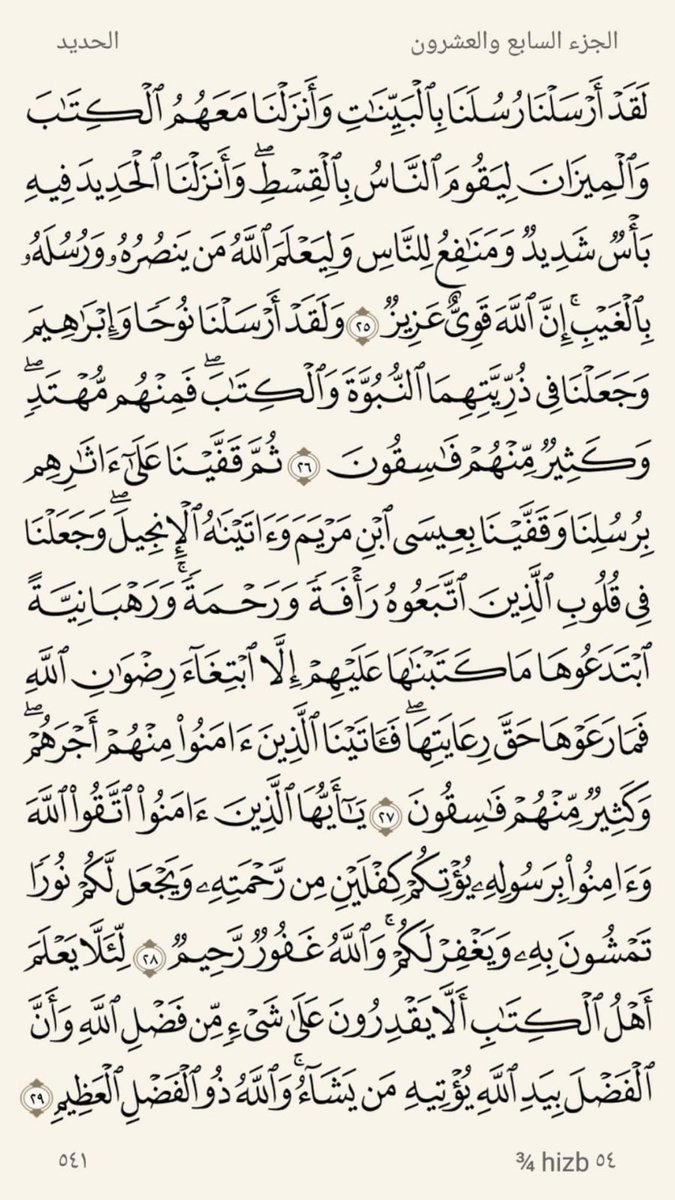 الجزء السابع والعشرون الحديد
لَقَدۡ أَرۡسَلۡنَا رُسُلَنَا بِٱلۡبَيِّنَٰتِ وَأَنزَلۡنَا مَعَهُمُ ٱلۡكِتَٰبَ
وَٱلۡمِيزَانَ لِيَقُومَ ٱلنَّاسُ بِٱلۡقِسۡطِۖ وَأَنزَلۡنَا ٱلۡحَدِيدَ فِيهِ
بَأۡسٞ شَدِيدٞ وَمَنَٰفِعُ لِلنَّاسِ وَلِيَعۡلَمَ ٱللَّهُ مَن يَنصُرُهُۥ وَرُسُلَهُۥ
بِٱلۡغَيۡبِۚ إِنَّ ٱللَّهَ قَوِيٌّ عَزِيزٞ ٢٥ وَلَقَدۡ أَرۡسَلۡنَا نُوحٗا وَإِبۡرَٰهِيمَ
وَجَعَلۡنَا فِي ذُرِّيَّتِهِمَا ٱلنُّبُوَّةَ وَٱلۡكِتَٰبَۖ فَمِنۡهُم مُّهۡتَدٖۖ
وَكَثِيرٞ مِّنۡهُمۡ فَٰسِقُونَ ٢٦ ثُمَّ قَفَّيۡنَا عَلَىٰٓ ءَاثَٰرِهِم
بِرُسُلِنَا وَقَفَّيۡنَا بِعِيسَى ٱبۡنِ مَرۡيَمَ وَءَاتَيۡنَٰهُ ٱلۡإِنجِيلَۖ وَجَعَلۡنَا
فِي قُلُوبِ ٱلَّذِينَ ٱتَّبَعُوهُ رَأۡفَةٗ وَرَحۡمَةٗۚ وَرَهۡبَانِيَّةً
ٱبۡتَدَعُوهَا مَا كَتَبۡنَٰهَا عَلَيۡهِمۡ إِلَّا ٱبۡتِغَآءَ رِضۡوَٰنِ ٱللَّهِ
فَمَا رَعَوۡهَا حَقَّ رِعَايَتِهَاۖ فَـَٔاتَيۡنَا ٱلَّذِينَ ءَامَنُواْ مِنۡهُمۡ أَجۡرَهُمۡۖ
وَكَثِيرٞ مِّنۡهُمۡ فَٰسِقُونَ ٢٧ يَٰٓأَيُّهَا ٱلَّذِينَ ءَامَنُواْ ٱتَّقُواْ ٱللَّهَ
وَءَامِنُواْ بِرَسُولِهِۦ يُؤۡتِكُمۡ كِفۡلَيۡنِ مِن رَّحۡمَتِهِۦ وَيَجۡعَل لَّكُمۡ نُورٗا
تَمۡشُونَ بِهِۦ وَيَغۡفِرۡ لَكُمۡۚ وَٱللَّهُ غَفُورٞ رَّحِيمٞ ٢٨ لِّئَلَّا يَعۡلَمَ
أَهۡلُ ٱلۡكِتَٰبِ أَلَّا يَقۡدِرُونَ عَلَىٰ شَيۡءٖ مِّن فَضۡلِ ٱللَّهِ وَأَنَّ
ٱلۡفَضۡلَ بِيَدِ ٱللَّهِ يُؤۡتِيهِ مَن يَشَآءُۚ وَٱللَّهُ ذُو ٱلۡفَضۡلِ ٱلۡعَظِيمِ ٢٩
¾ hizb ٥٤ ٥٤١